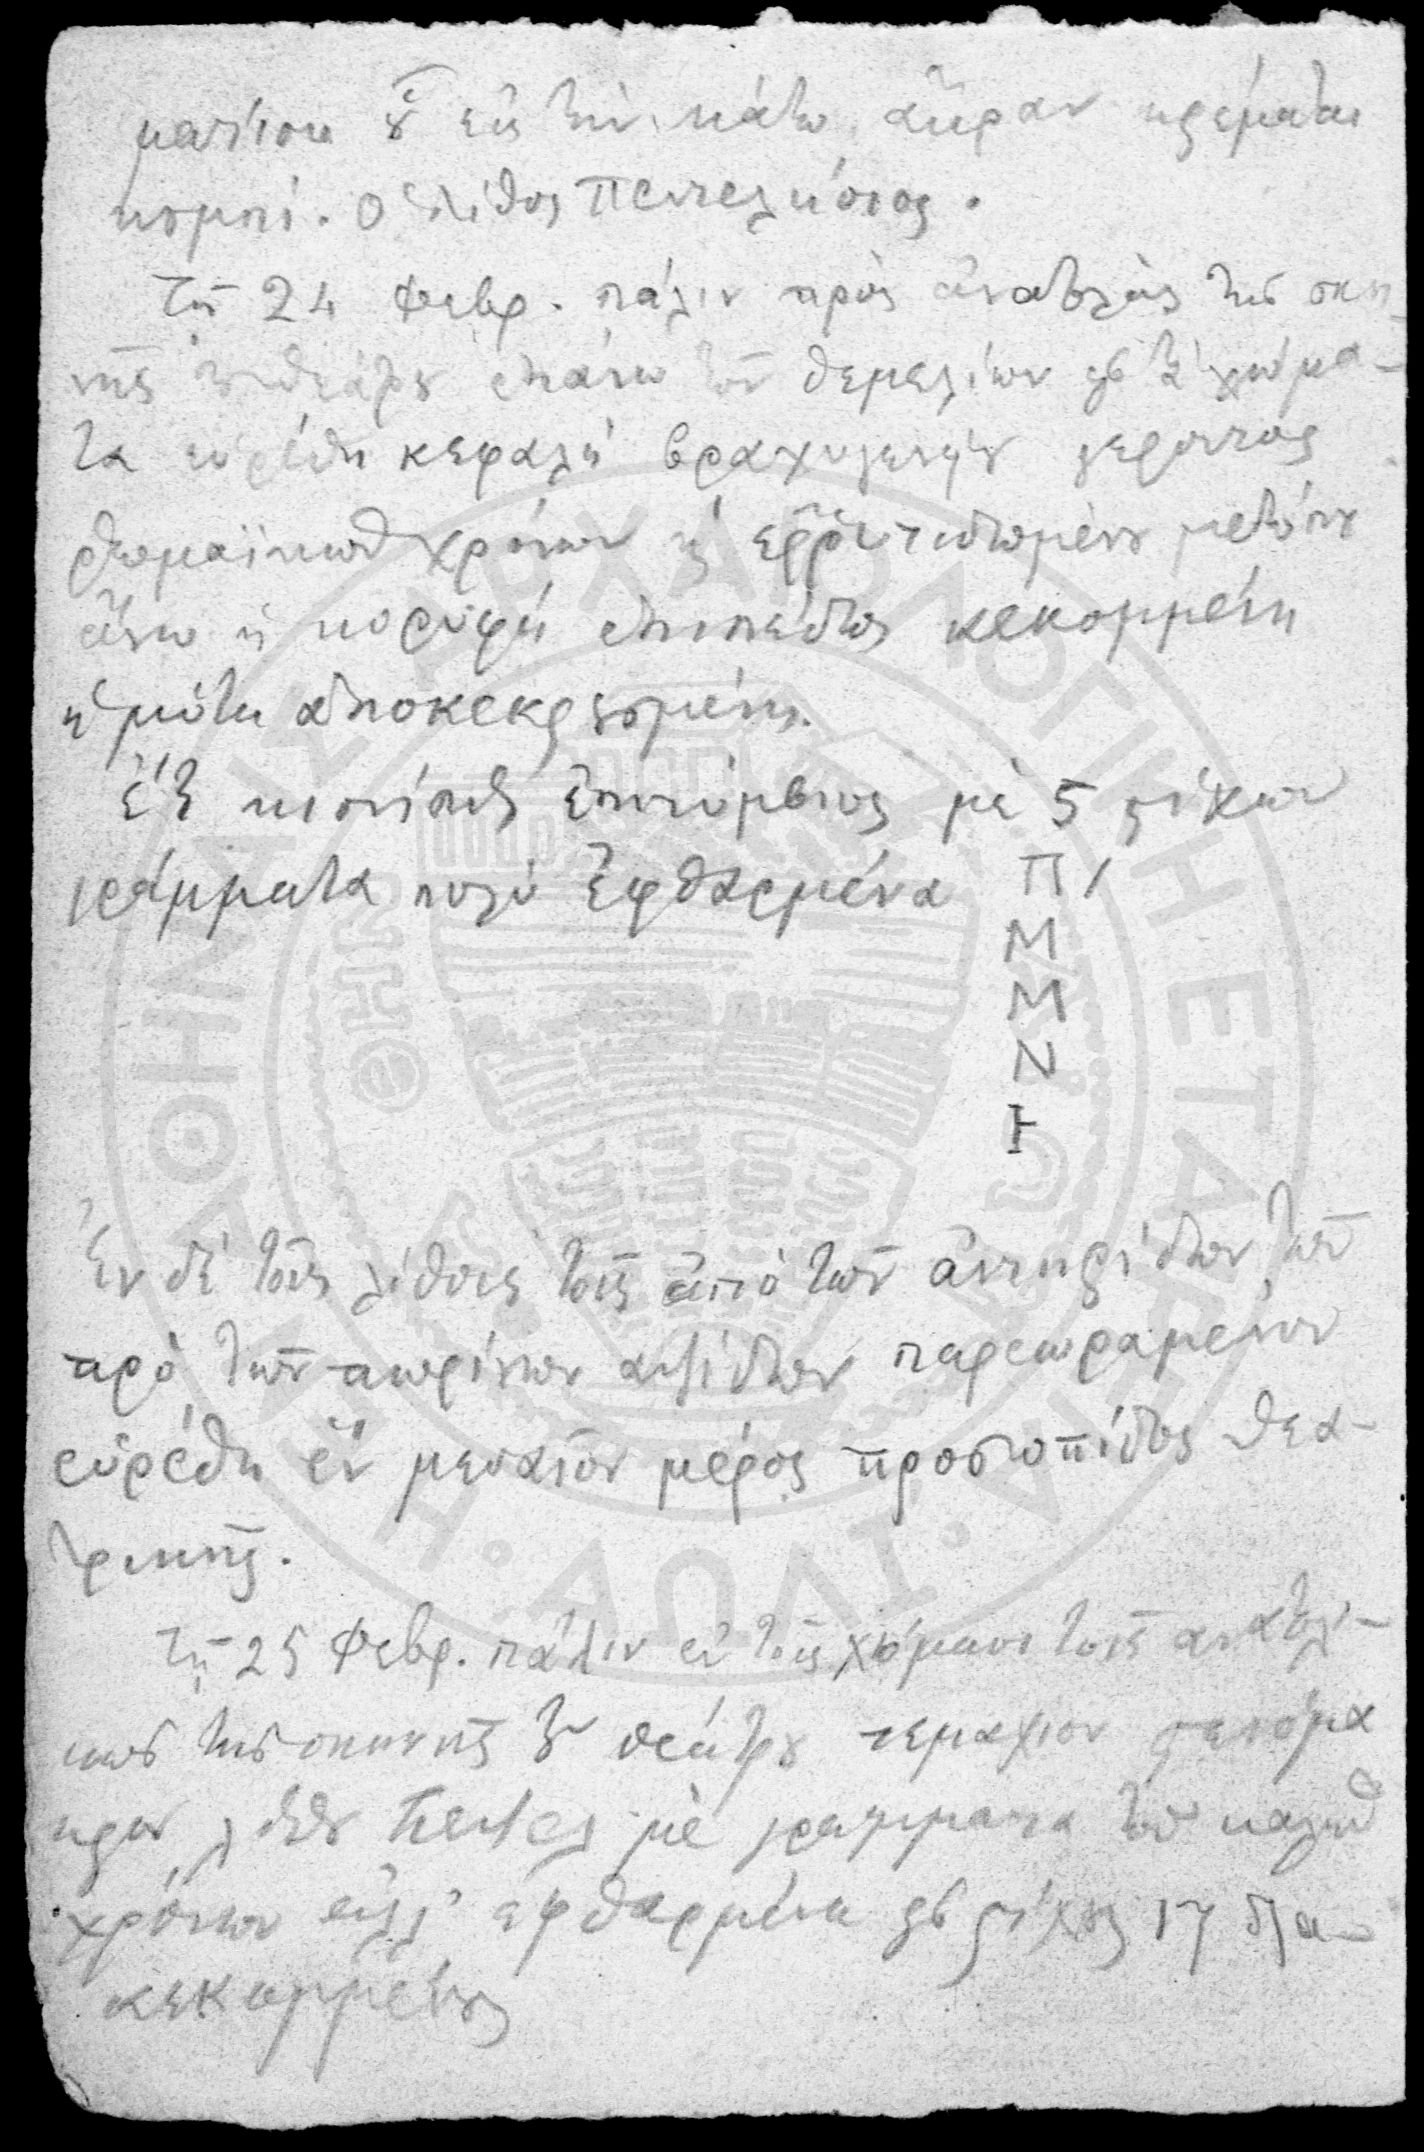 ματίου ȣ̃ εἰς τὴν κάτω ἄκραν κρέμαται
κομπί. Ὁ λίθος Πεντελήσιος.
Τῇ 24 Φεβρ. πάλιν πρὸς ἀνατολὰς τῆς σκη-
νῆς τοῦ θεάτρȣ ἐπάνω τῶν θεμελίων εἰς τὰ χώμα-
τα εὑρέθη κεφαλὴ βραχυγενείȣ γέροντος
ῥωμαϊκῶν χρόνων κ ἐρρυτιδωμένȣ μετώπȣ
ἄνω ἡ κορυφὴ ἐπιπέδως κεκομμένη
ἡ μύτη ἀποκεκρȣσμένη.
Ἓξ κιονίσκος ἐπιτύμβιος μὲ 5 στίχων
γράμματα πολὺ ἐφθαρμένα Π/
Μ
Μ
Ν
Ͱ
Ἐν δὲ τοῖς λίθοις τοῖς ἀπὸ τῶν ἀντηρίδων τῶν
πρὸ τῶν πωρίνων ἁψίδων παρεωραμένον
εὑρέθη ἓν μεσαῖον μέρος προσωπίδος θεα-
τρικῆς.
Τῇ 25 Φεβρ. πάλιν ἐν τοῖς χώμασι τοῖς ἀνατολι-
κῶς τῆς σκηνῆς τοῦ θεάτρȣ τεμάχιον
λίθȣ Πεντελ μὲ γράμματα τῶν καλῶν
χρόνων ἀλλ' ἐφθαρμένα εἰς στίχȣς 17
κεκομμένȣς